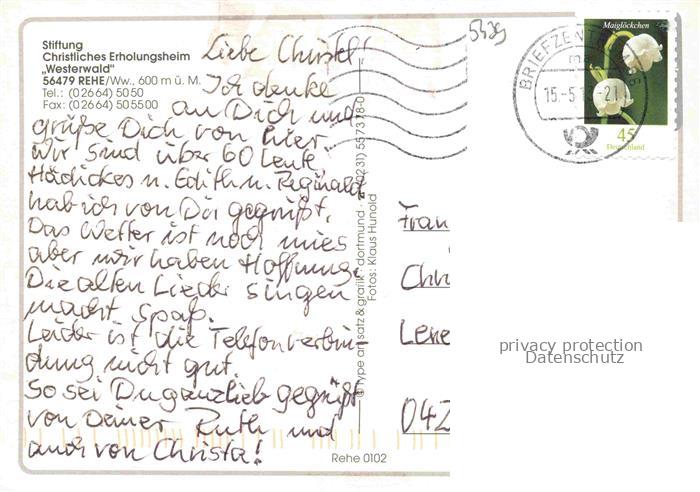 Stiftung
Christliches Erholungsheim
„Westerwald"
56479 REHE/Ww., 600 m ü. M.
Tel.: (02664) 5050
Fax: (02664) 505500
Liebe Christel!
Ich denke
an Dich und
grüße Dich von hier
Wir sind über 60 Leute
Hädickes u. Edith u. Reginald
hab ich von Dir gegrüßt.
Das Wetter ist noch mies
aber wir haben Hoffnung.
Die alten Lieder singen
macht Spaß.
Leider ist die Telefonverbin-
dung nicht gut.
So sei Du ganz lieb gegrüßt
von Deiner Ruth und
auch von Christa!
© type art satz & grafik · dortmund · (0231) 557378-0
Fotos: Klaus Hunold
Rehe 0102
BRIEFZENTRUM
15.-5.1 -21
Maiglöckchen
45
Deutschland
Frau
Chri
Lene
042
privacy protection
Datenschutz